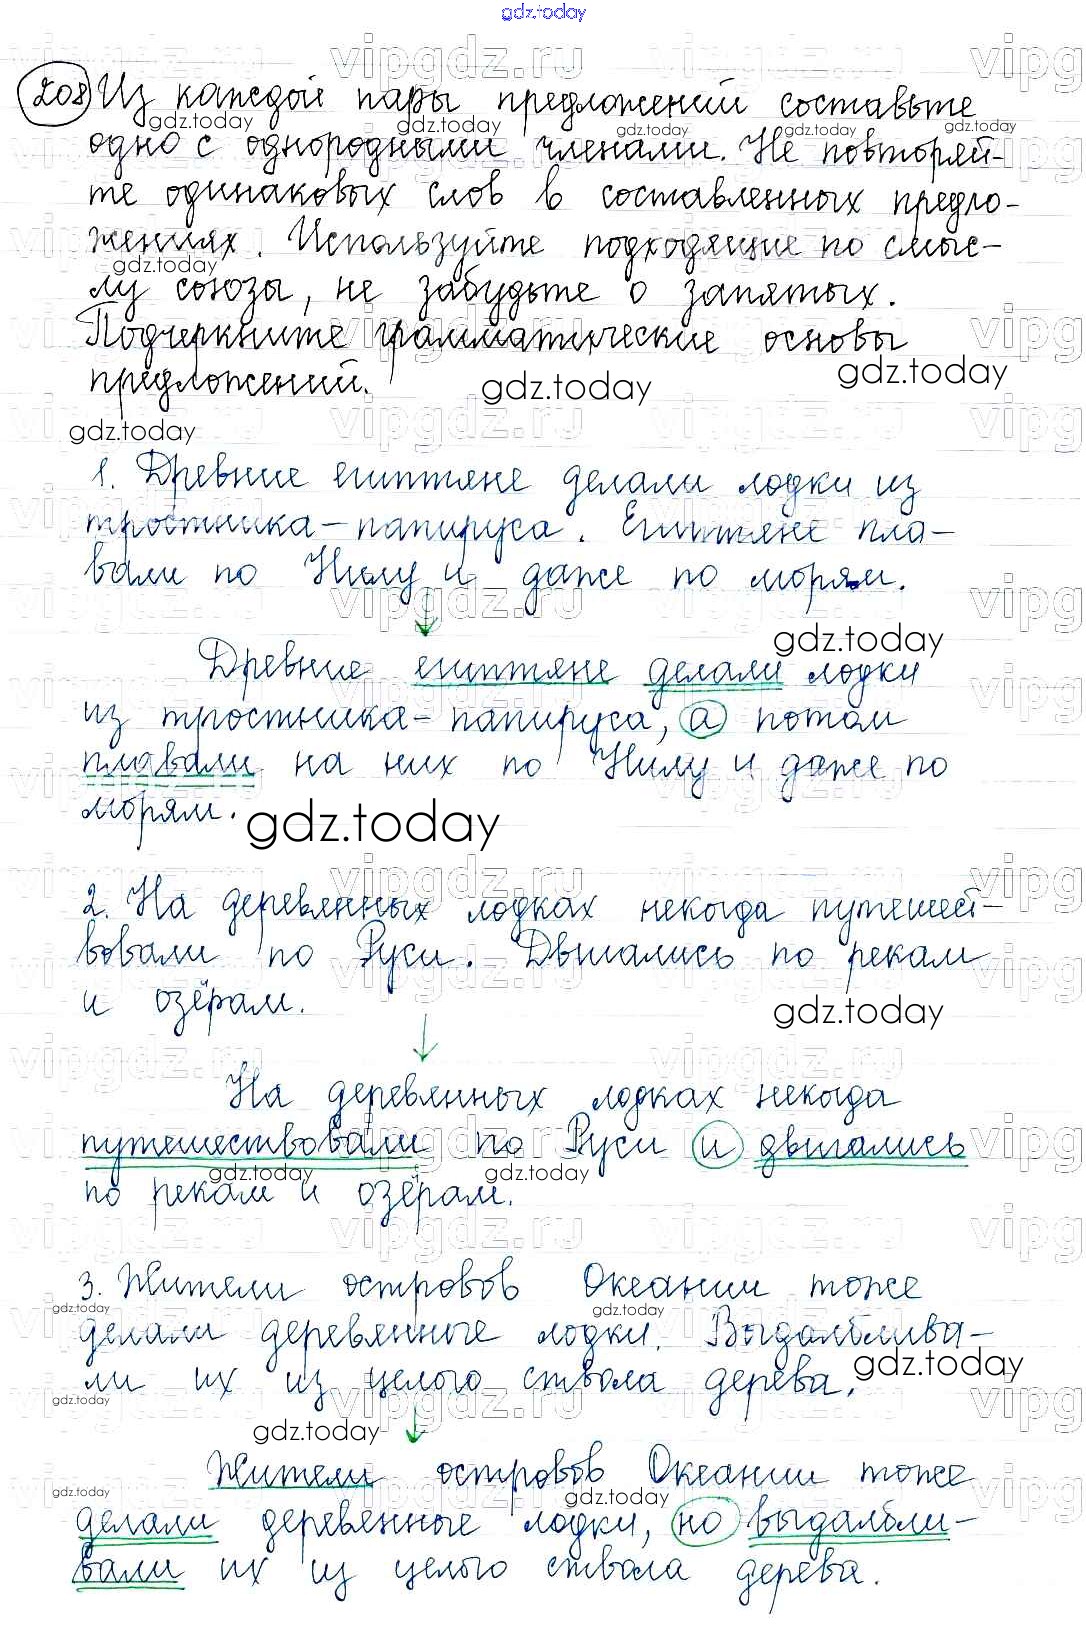 gdz.today
208 Из каждой пары предложений составьте
одно с однородными членами. Не повторяй-
те одинаковых слов в составленных предло-
жениях. Используйте подходящие по смыс-
лу союзы, не забудьте о запятых.
Подчеркните грамматические основы
предложений.
1. Древние египтяне делали лодки из
тростника-папируса. Египтяне пла-
вали по Нилу и даже по морям.
Древние египтяне делали лодки
из тростника-папируса, а потом
плавали на них по Нилу и даже по
морям.
2. На деревянных лодках некогда путешест-
вовали по Руси. Двигались по рекам
и озёрам.
На деревянных лодках некогда
путешествовали по Руси и двигались
по рекам и озёрам.
3. Жители островов Океании тоже
делали деревянные лодки. Выдалблива-
ли их из целого ствола дерева.
Жители островов Океании тоже
делали деревянные лодки, но выдалбли-
вали их из целого ствола дерева.